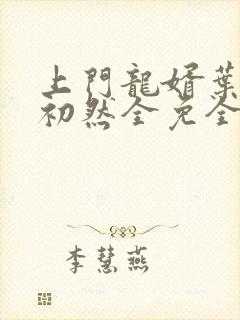 上門龍婿葉
初然全免全
李慧燕